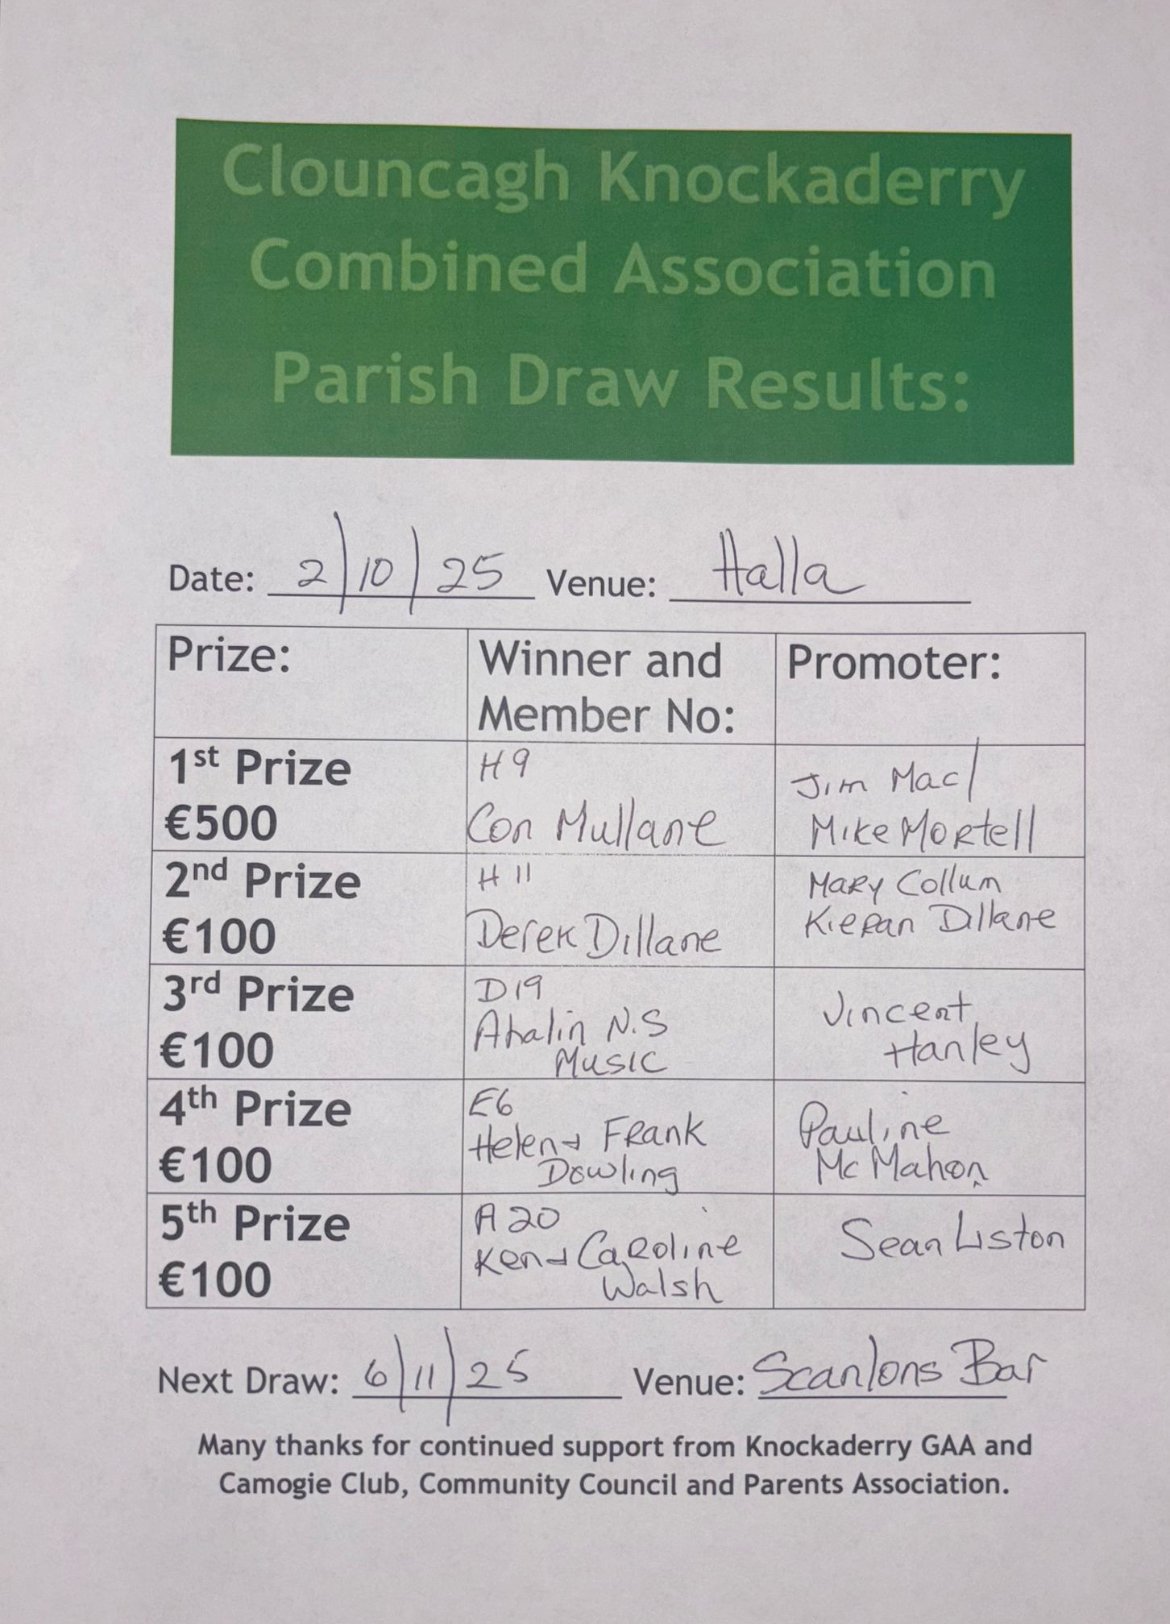 Clouncagh Knockaderry
Combined Association
Parish Draw Results:
Date: 2/10/25 Venue: Halla
Prize:
Winner and
Member No:
Promoter:
1st Prize
€500
H9
Con Mullane
Jim Mac/
Mike Mortell
2nd Prize
€100
H 11
Derek Dillane
Mary Collum
Kieran Dillane
3rd Prize
€100
D19
Ahalin N.S
Music
Vincent
Hanley
4th Prize
€100
E6
Helen & Frank
Dowling
Pauline
McMahon
5th Prize
€100
A 20
Ken & Caroline
Walsh
Sean Liston
Next Draw: 6/11/25 Venue: Scanlons Bar
Many thanks for continued support from Knockaderry GAA and
Camogie Club, Community Council and Parents Association.